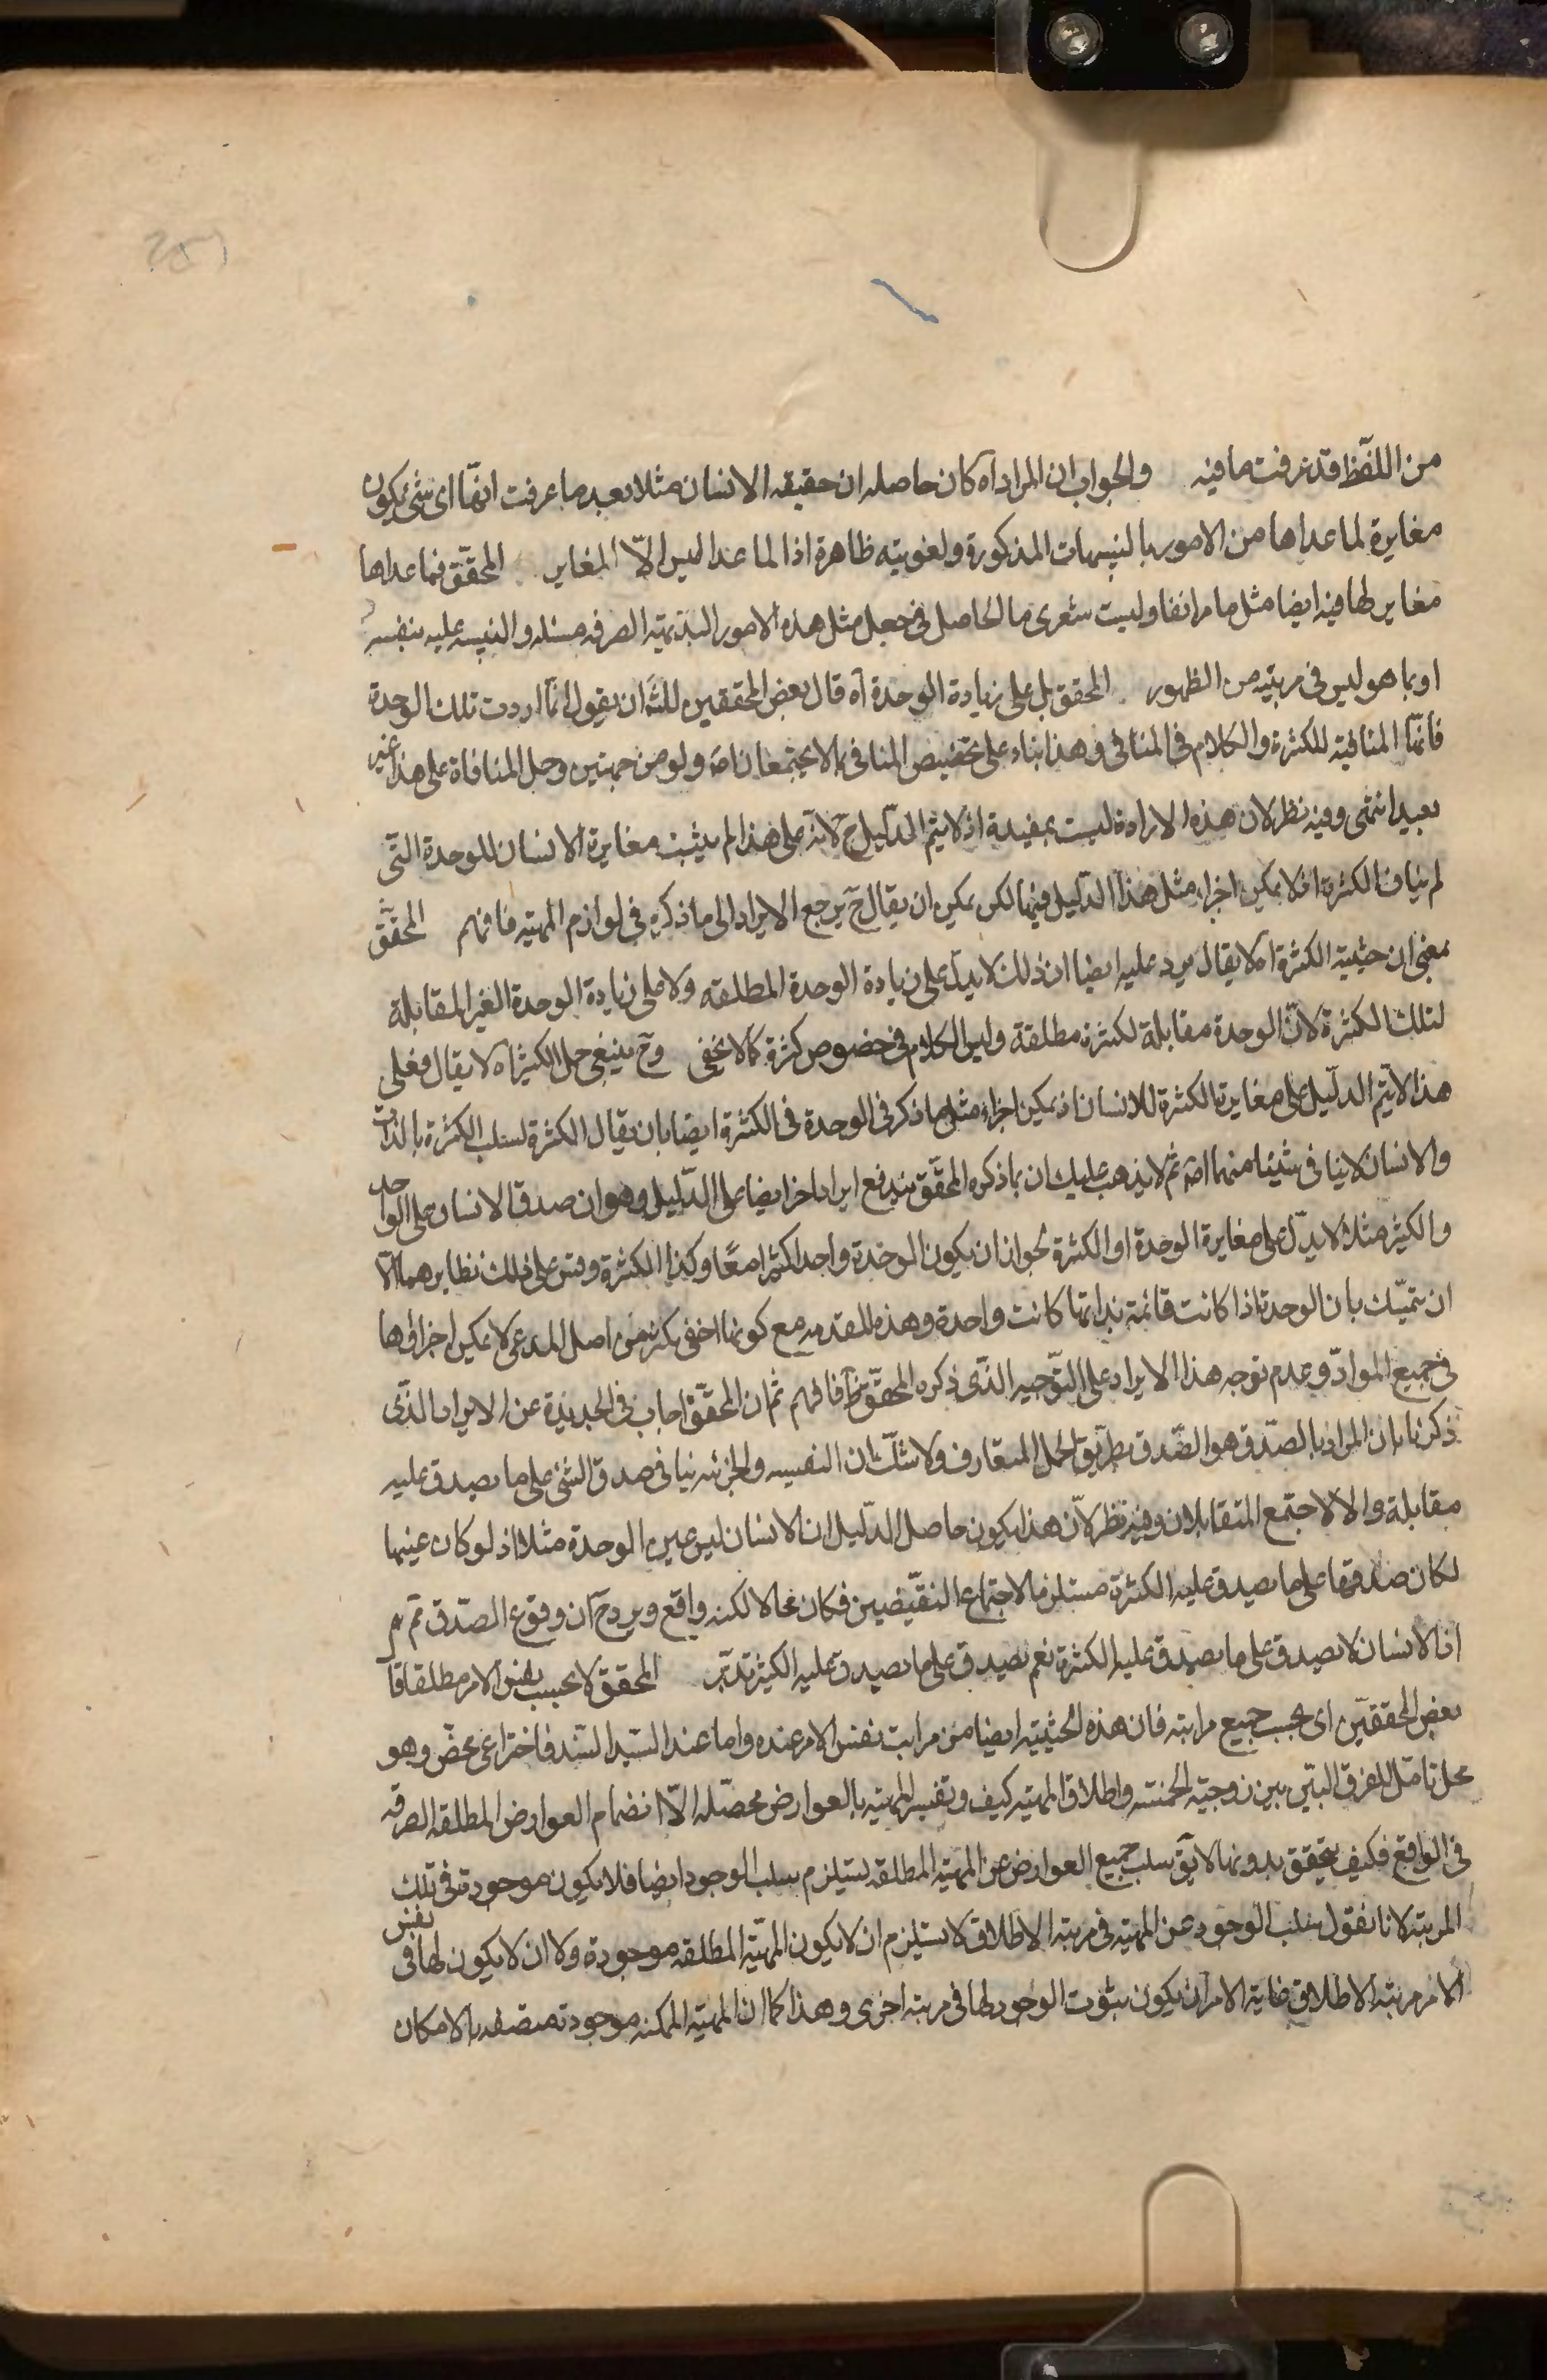 من اللفظ قد عرفت ما فيه والجواب ان المراد اه كان حاصله ان حقيقه الانسان مثلا بعد ما عرفت انها اى شئ يكون
مغايرة لما عداها من الامور بالتنبيهات المذكورة ولغويته ظاهرة اذ المـا عدا ليس الا المغاير المحقق فما عداها
مغاير لها فيه ايضا مثل ما مر انفا وليت شعرى ما الحاصل فى جعل مثل هذه الامور البديهيه الصرفه مسئله والتنبيه عليه بنفسه
او بما هو ليس فى مرتبته من الظهور المحقق بل على زيادة الوحدة اه قال بعض المحققين للش ان يقول انما اردت تلك الوحدة
فانها المنافيه للكثرة والكلام فى المنافى وهذا بناء على تخصيص المنافى بما لا يجتمعان اصه ولو من جهتين وحمل المنافاة على هذا غير
بعيد انتهى وفيه نظر لان هذه الارادة ليست بمفيدة اذ لا يتم الدليل ح لانه على هذا لم يثبت مغايرة الانسان للوحدة التى
لم يناف الكثرة اذ لا يمكن اجراء مثل هذا الدليل فيها لكن يمكن ان يقال ح يرجع الايراد الى ما ذكره فى لوازم المهيه فافهم المحقق
بمعنى ان حيثية الكثرة اه لا يقال يرد عليه ايضا ان ذلك لا يدل على زيادة الوحدة المطلقه ولا على زيادة الوحدة الغير المقابلة
لتلك الكثرة لان الوحدة مقابلة لكثرة مطلقة وليس الكلام فى خصوص كثرة كما لا يخفى وح ينبغى حمل الكثير اه لا يقال فعلى
هذا لا يتم الدليل على مغايرة الكثرة للانسان اذ يمكن اجراء مثل ما ذكر فى الوحدة فى الكثرة ايضا بان يقال الكثرة لسلب الكثرة بالذات
والانسان لا ينافى شيئا منهما اصه ثم لا يذهب عليك ان بما ذكره المحقق يندفع ايراد اخر ايضا على الدليل وهو ان صدق الانسان على الواحد
والكثير مثلا لا يدل على مغايرة الوحدة او الكثرة لجواز ان يكون الوحدة واحدا كثيرا معا وكذا الكثرة وقس على ذلك نظايرهما الا
ان يتمسك بان الوحدة اذا كانت قائمة بذاتها كانت واحدة وهذه المقدمه مع كونها اخفى بكثير من اصل المدعى لا يمكن اجراؤها
فى جميع المواد وعدم توجه هذا الايراد على التوجيه الذى ذكره المحقق ظ فافهم ثم ان المحقق اجاب فى الجديدة عن الايراد الذى
ذكرنا بان المراد بالصدق هو الصدق بطريق الحمل المتعارف ولا شك ان النفسيه والجزئيه ينافى صدق الشئ على ما يصدق عليه
مقابلة والا لاجتمع المتقابلان وفيه نظر لان هذا يكون حاصل الدليل ان الانسان ليس عين الوحدة مثلا اذ لو كان عينها
لكان صدقها على ما يصدق عليه الكثرة مستلزما لاجتماع النقيضين فكان محالا لكنه واقع ويرد ح ان وقوع الصدق ثم مم
اذ الانسان لا يصدق على ما يصدق عليه الكثرة نعم يصدق على ما يصدق عليه الكثير تدبر المحقق لا بحسب نفس الامر مطلقا قا
بعض المحققين اى بحسب جميع مراتبه فان هذه الحيثيه ايضا من مراتب نفس الامر عنده واما عند السيد السند فاختراعى محض وهو
محل تامل للفرق البين بين زوجية الخمسه واطلاق المهيه كيف وتفسير المهيه بالعوارض محصله الا انضمام العوارض المطلقه الصرفه
فى الواقع فكيف يتحقق بدونها لا يق سلب جميع العوارض عن المهيه المطلقه يستلزم سلب الوجود ايضا فلا يكون موجودة فى تلك
المرتبه لانا نقول سلب الوجود عن المهيه فى مرتبه الاطلاق لا يستلزم ان لا يكون المهيه المطلقه موجودة ولا ان لا يكون لها فى نفس
الامر مرتبه الاطلاق غاية الامر ان يكون ثبوت الوجود لها فى مرتبه اخرى وهذا كما ان المهيه الممكنه موجودة متصفه بالامكان